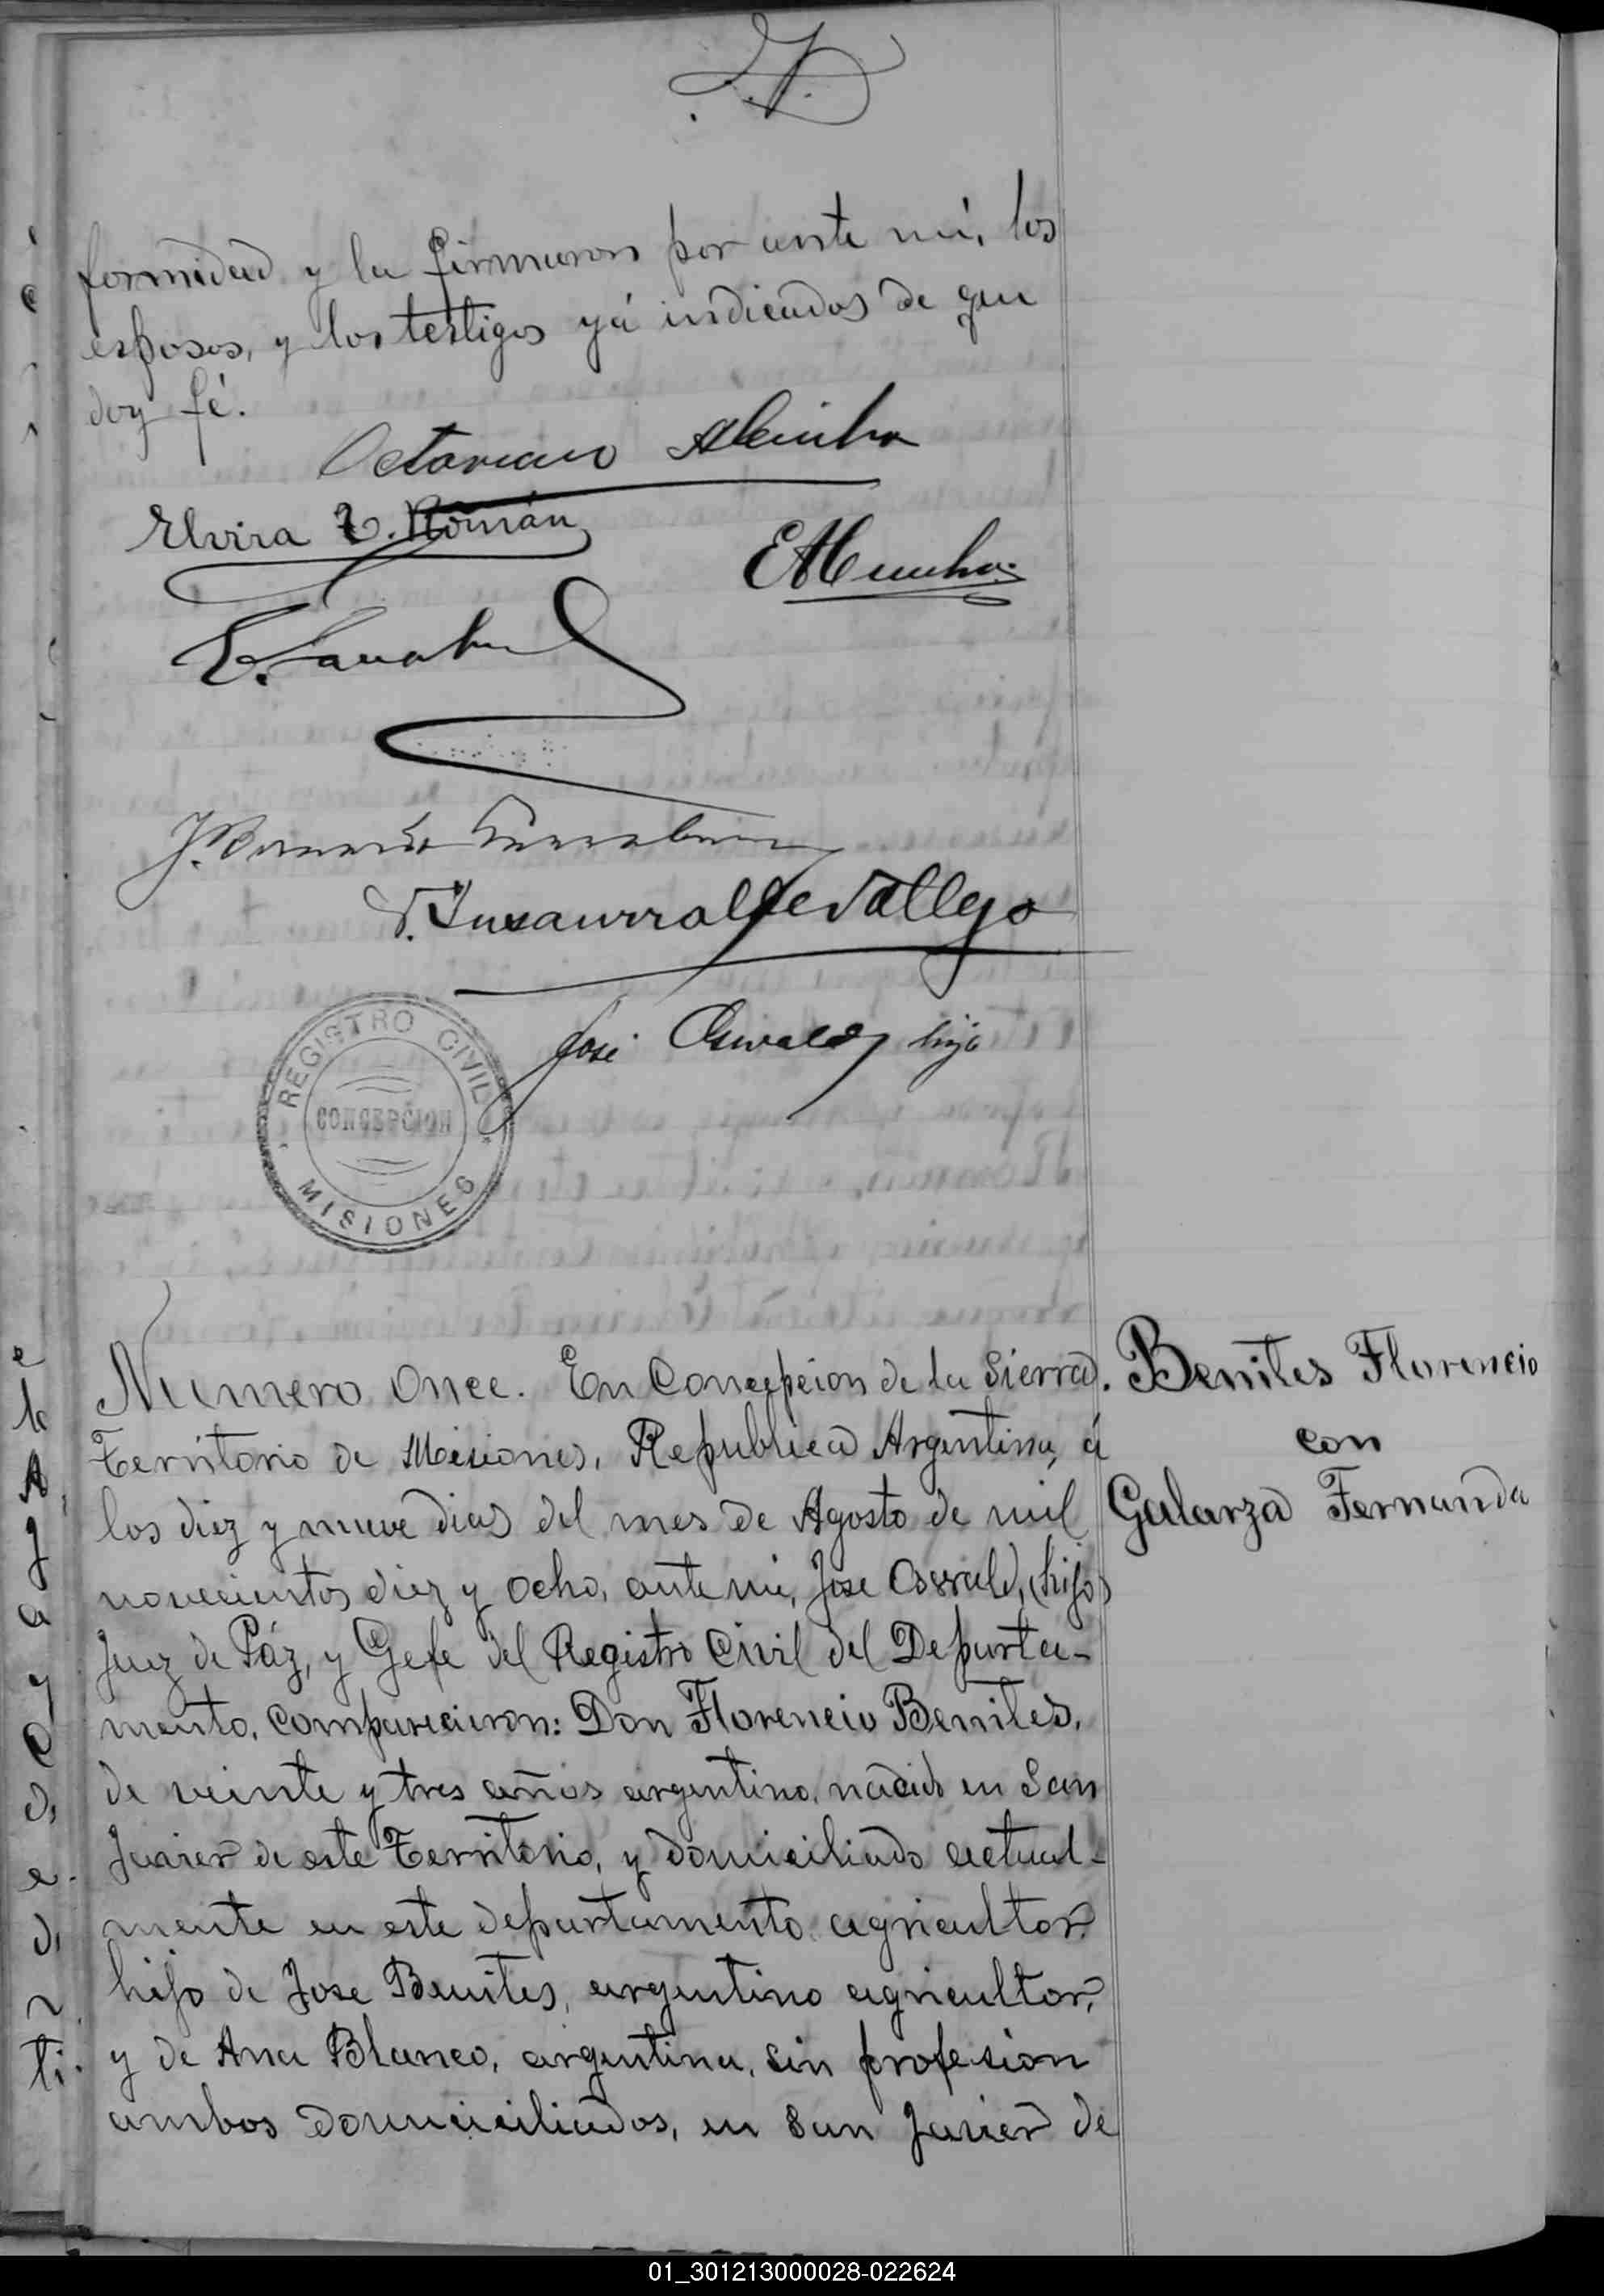 formidad y la firmaron por ante mi, los
esposos, y los testigos yá indicados de que
doy fé.
Octaviano
Elvira Z. Román
J.
V. Insaurralde Vallejo
José Oswald hijo
REGISTRO CIVIL
CONCEPCION
MISIONES
Numero Once. En Concepcion de la Sierra.
Territorio de Misiones, Republica Argentina, á
los diez y nueve dias del mes de Agosto de mil
novecientos diez y ocho, ante mi, Jose Oswald, (hijo)
Juez de Páz, y Gefe del Registro Civil del Departa-
mento, comparecieron: Don Florencio Benites,
de veinte y tres años argentino, nacido en San
Javier de este Territorio, y domiciliado actual-
mente en este departamento agricultor,
hijo de Jose Benites, argentino agricultor,
y de Ana Blanco, argentina, sin profesion
ambos domiciliados, en San Javier de
Benites Florencio
con
Galarza Fernanda
01_301213000028-022624